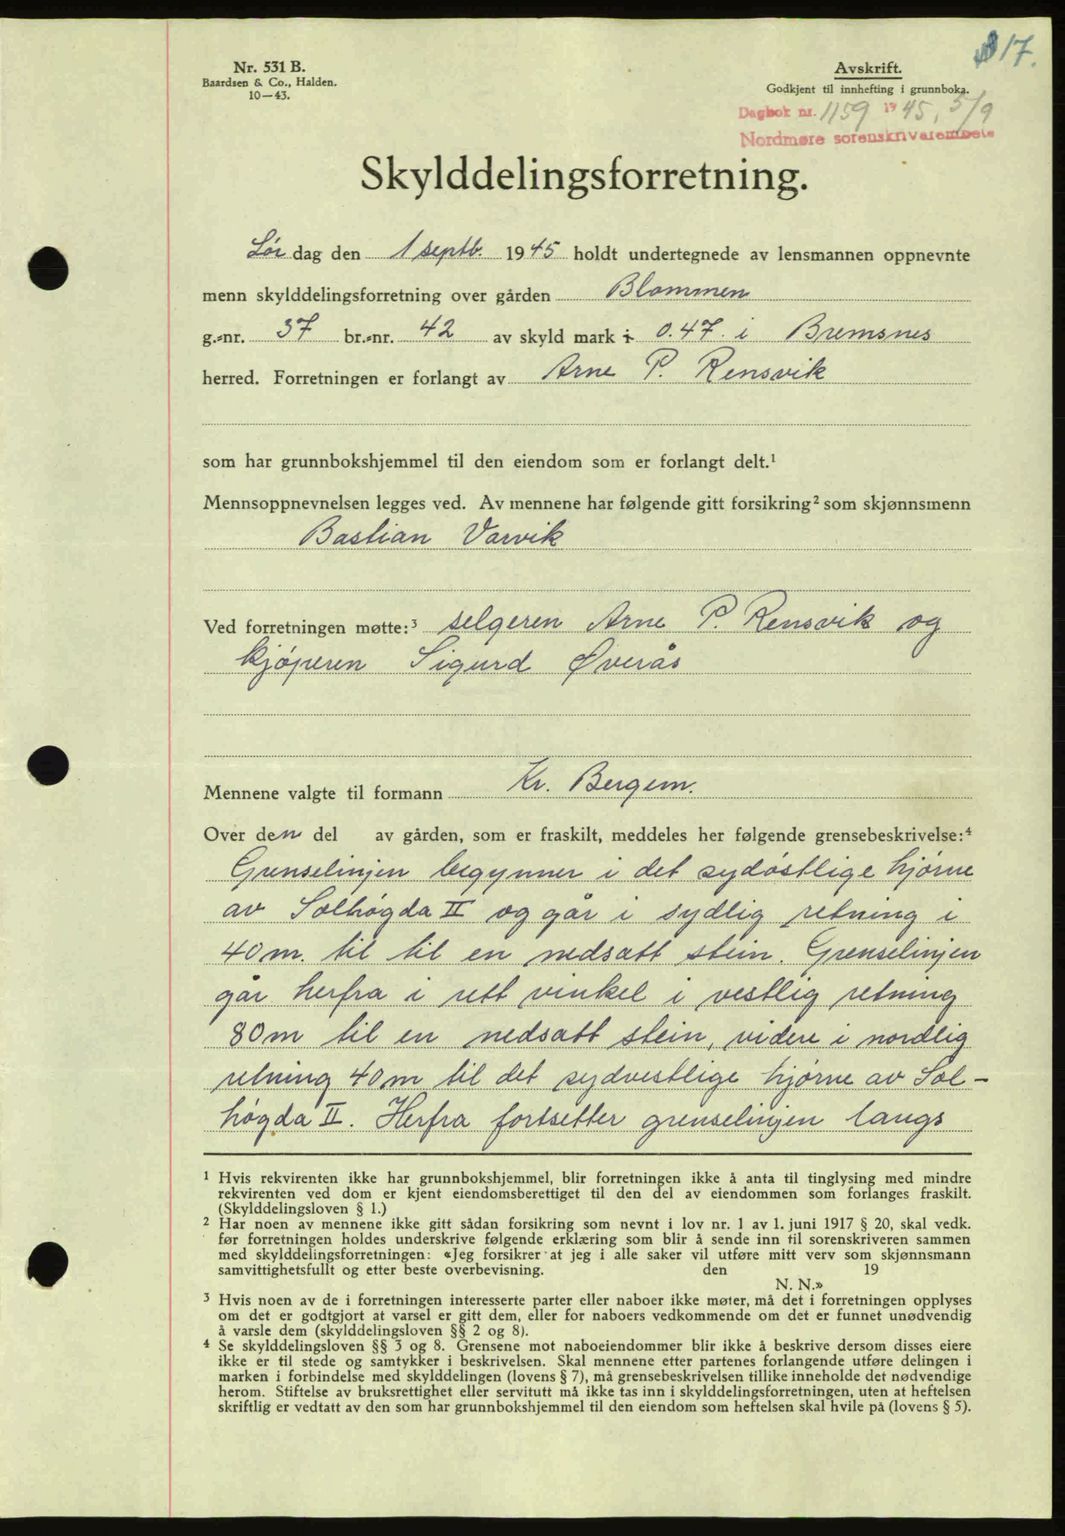 17.
Nr. 531 B.
Baardsen & Co., Halden.
10—43.
Avskrift.
Godkjent til innhefting i grunnboka.
Dagbok nr. 1159 1945, 5/9
Nordmøre sorenskriverembete
Skylddelingsforretning.
Lør dag den 1 septb. 1945 holdt undertegnede av lensmannen oppnevnte
menn skylddelingsforretning over gården Blommen
g.-nr. 37 br.-nr. 42 av skyld mark i 0.47 i Bremsnes
herred. Forretningen er forlangt av Arne P. Rensvik
som har grunnbokshjemmel til den eiendom som er forlangt delt.¹
Mennsoppnevnelsen legges ved. Av mennene har følgende gitt forsikring² som skjønnsmenn
Bastian Varvik
Ved forretningen møtte:³ selgeren Arne P. Rensvik og
kjøperen Sigurd Øverås
Mennene valgte til formann Kr. Bergem.
Over den del av gården, som er fraskilt, meddeles her følgende grensebeskrivelse:⁴
Grenselinjen begynner i det sydøstlige hjørne
av Solhøgda II og går i sydlig retning i
40 m. til til en nedsatt stein. Grenselinjen
går herfra i rett vinkel i vestlig retning
80 m til en nedsatt stein, videre i nordlig
retning 40 m til det sydvestlige hjørne av Sol-
høgda II. Herfra fortsetter grenselinjen langs
¹ Hvis rekvirenten ikke har grunnbokshjemmel, blir forretningen ikke å anta til tinglysing med mindre
rekvirenten ved dom er kjent eiendomsberettiget til den del av eiendommen som forlanges fraskilt.
(Skylddelingsloven § 1.)
² Har noen av mennene ikke gitt sådan forsikring som nevnt i lov nr. 1 av 1. juni 1917 § 20, skal vedk.
før forretningen holdes underskrive følgende erklæring som blir å sende inn til sorenskriveren sammen
med skylddelingsforretningen: «Jeg forsikrer at jeg i alle saker vil utføre mitt verv som skjønnsmann
samvittighetsfullt og etter beste overbevisning. den 19
N. N.»
³ Hvis noen av de i forretningen interesserte parter eller naboer ikke møter, må det i forretningen opplyses
om det er godtgjort at varsel er gitt dem, eller for naboers vedkommende om det er funnet unødvendig
å varsle dem (skylddelingsloven §§ 2 og 8).
⁴ Se skylddelingsloven §§ 3 og 8. Grensene mot naboeiendommer blir ikke å beskrive dersom disses eiere
ikke er til stede og samtykker i beskrivelsen. Skal mennene etter partenes forlangende utføre delingen i
marken i forbindelse med skylddelingen (lovens § 7), må grensebeskrivelsen tillike inneholde det nødvendige
herom. Stiftelse av bruksrettighet eller servitutt må ikke tas inn i skylddelingsforretningen, uten at heftelsen
skriftlig er vedtatt av den som har grunnbokshjemmel til den eiendom som heftelsen skal hvile på (lovens § 5).